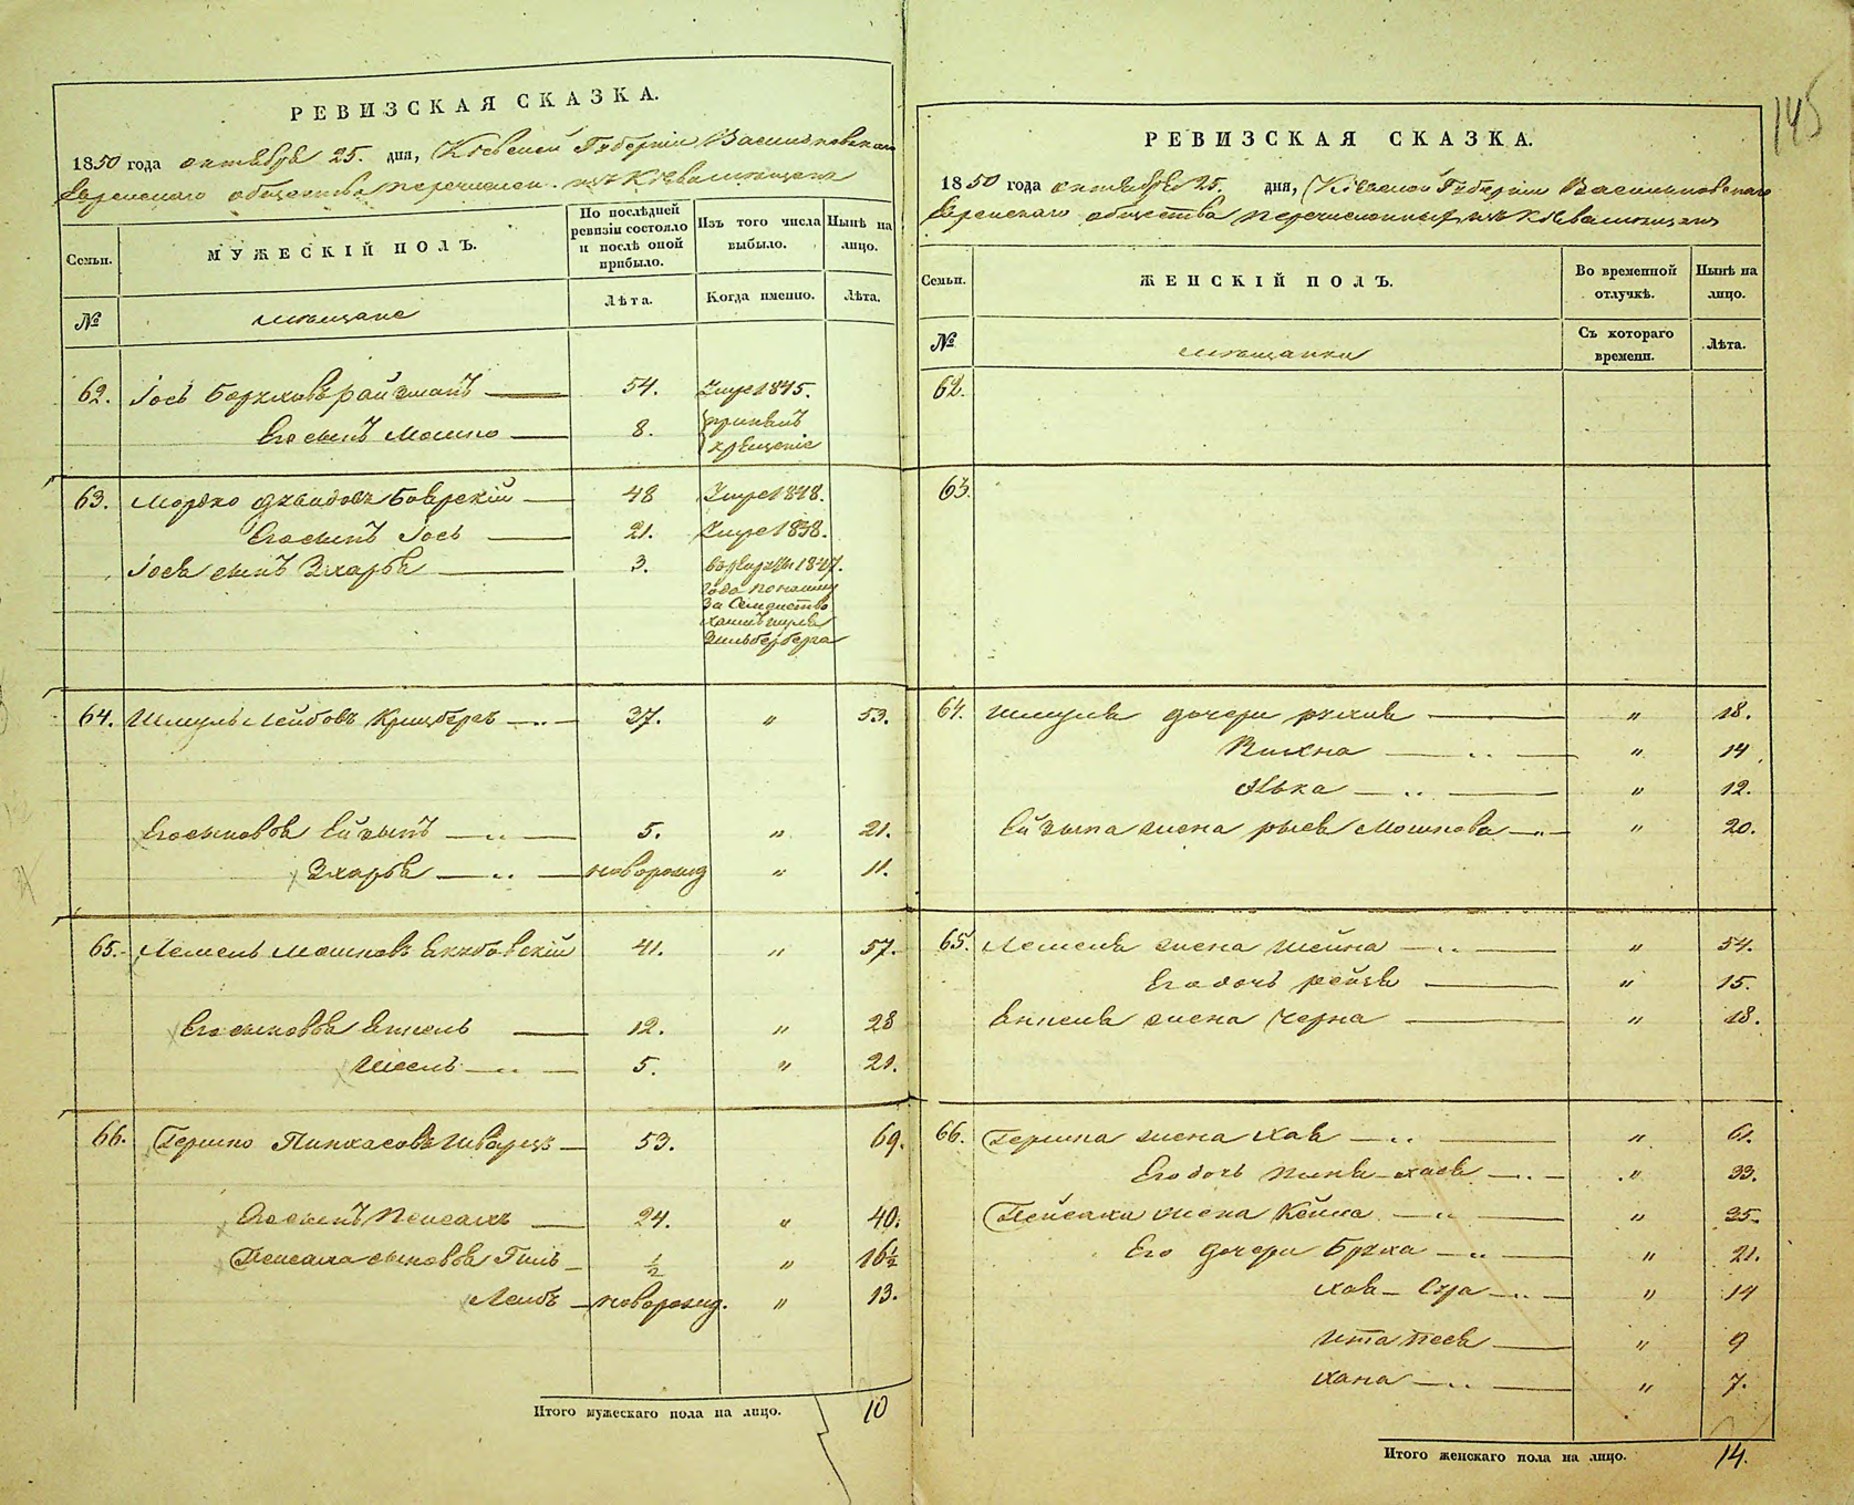 РЕВИЗСКАЯ СКАЗКА.
1850 года октября 25. дня, Кіевской Губерніи Васильковскаго
Еврейскаго общества перечислен. изъ Кіева мещанъ
Семьи.
МУЖЕСКІЙ ПОЛЪ.
По послѣдней ревизіи состояло и послѣ оной прибыло.
Изъ того числа выбыло.
Нынѣ на лицо.
№
мещане
Лѣта.
Когда именно.
Лѣта.
62. Іось Берковъ Райзманъ 54. Умре 1845.
Его сынъ Мошко 8. принялъ
крещеніе
63. Мордко Давидовъ Боярскій 48 Умре 1848.
Его сынъ Іось 21. Умре 1838.
Іося сынъ Зхарья 3. въ рекруты 1847.
года
за семейство
Зильберберга
64. Шмуль Лейбовъ Крицберъ 37. " 53.
Его сыновья Ейзыпъ 5. " 21.
Зхарья новорожд " 11.
65. Лемель Мошковъ Янковскій 41. " 57.
Его сыновья Янкель 12. " 28
Шлемъ 5. " 21.
66. Гершко Пинхасовъ Шварцъ 53. 69.
Его сынъ Пейсахъ 24. " 40.
Пейсаха сыновья Гиль ½ " 16½
Лейбъ новорожд. " 13.
Итого мужескаго пола на лицо. 10
145
РЕВИЗСКАЯ СКАЗКА.
1850 года октября 25. дня, Кіевской Губерніи Васильковскаго
Еврейскаго общества перечисленных изъ Кіева мещанъ
Семьи.
ЖЕНСКІЙ ПОЛЪ.
Во временной отлучкѣ.
Нынѣ на лицо.
№
мещанки
Съ котораго времени.
Лѣта.
62.
63.
64. Шмуля дочери Рухля " 18.
Вихна " 14
Элька " 12.
Ейзыпа жена Рыся Мошкова " 20.
65. Лемеля жена Шейна " 54.
Его дочь Рейзя " 15.
Янкеля жена Черна " 18.
66. Гершка жена Хая " 61.
Его дочь Хася " 33.
Пейсаха жена Кейла " 35.
Его дочери Бруха " 21.
Хая-Сура " 14
Ита Песя " 9
Хана " 7.
Итого женскаго пола на лицо. 14.